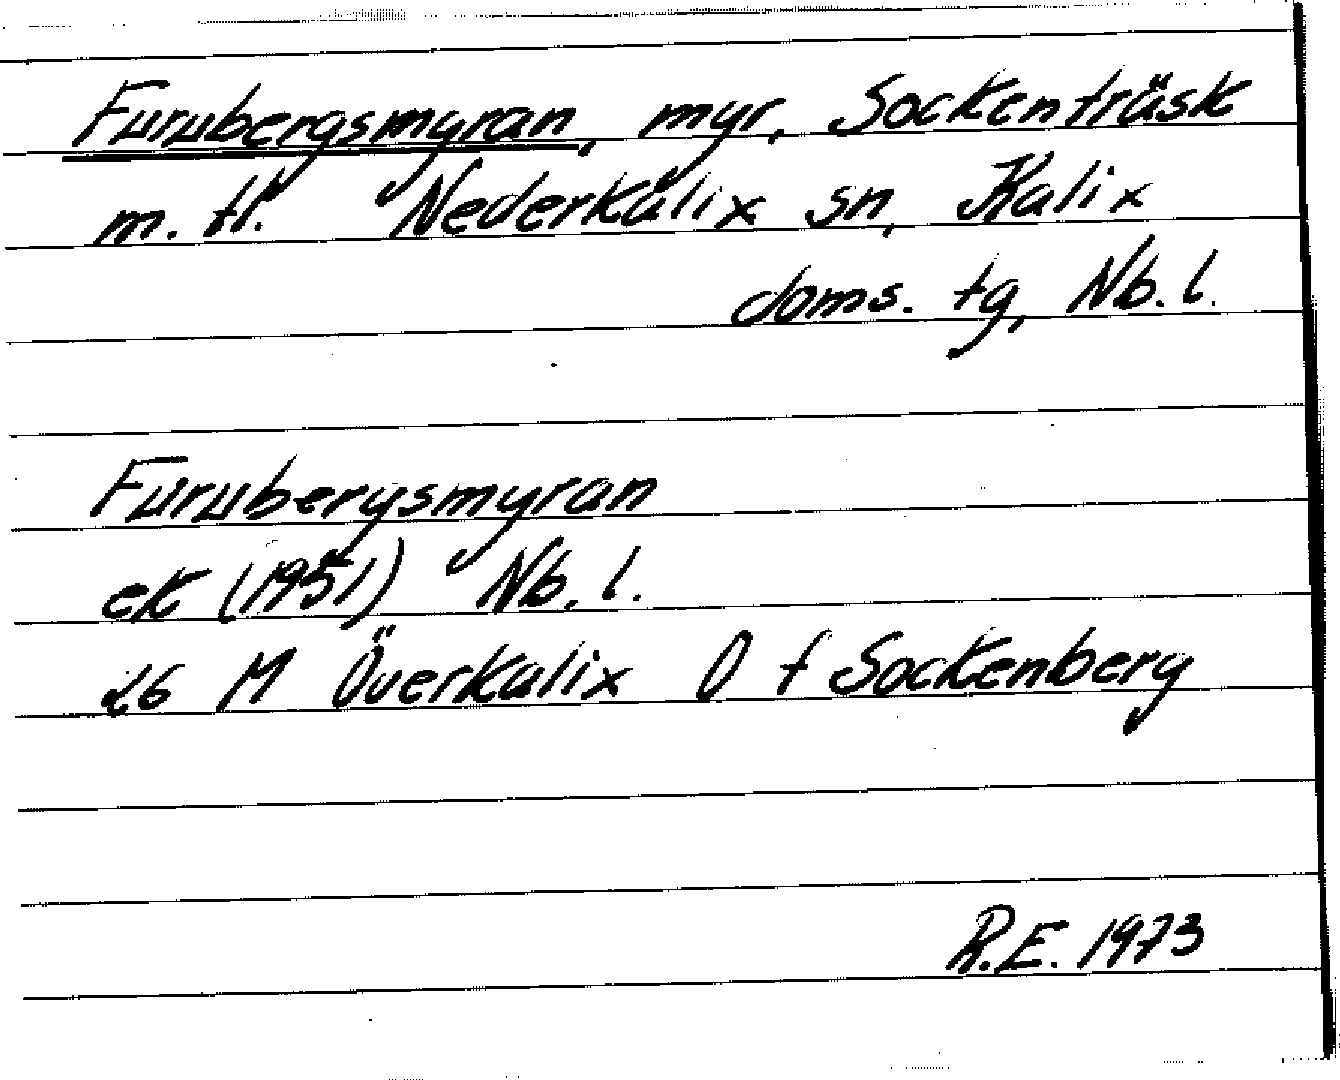 Furubergsmyran, myr, Sockenträsk
m. fl. Nederkalix sn, Kalix
doms. tg, Nb. l.
Furubergsmyran
ek (1951) Nb. l.
26 M Överkalix O f Sockenberg
R.E. 1973